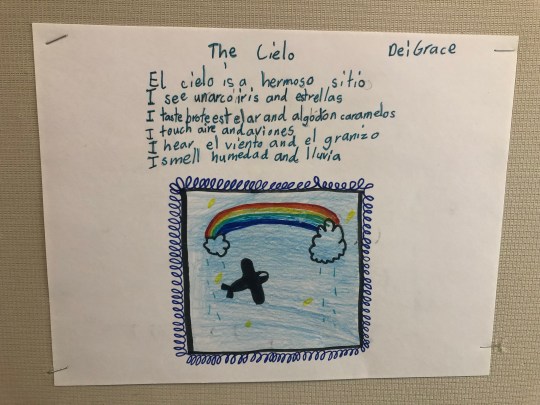 The Cielo
DeiGrace
El cielo is a hermoso sitio
I see unarcoiris and estrellas
I taste and algodón caramelos
I touch aire and aviones
I hear el viento and el granizo
I smell humedad and lluvia